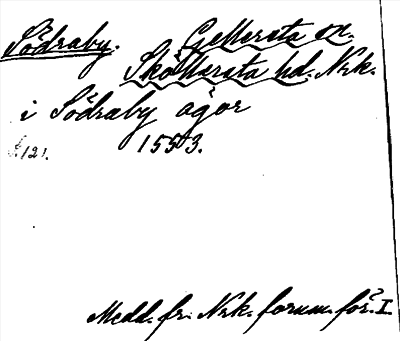 Södraby. Gällersta sn.
Sköllersta hd. Nrk.
i Södraby ägor
s. 121. 1553.
Medd. fr. Nrk. fornm. för. I